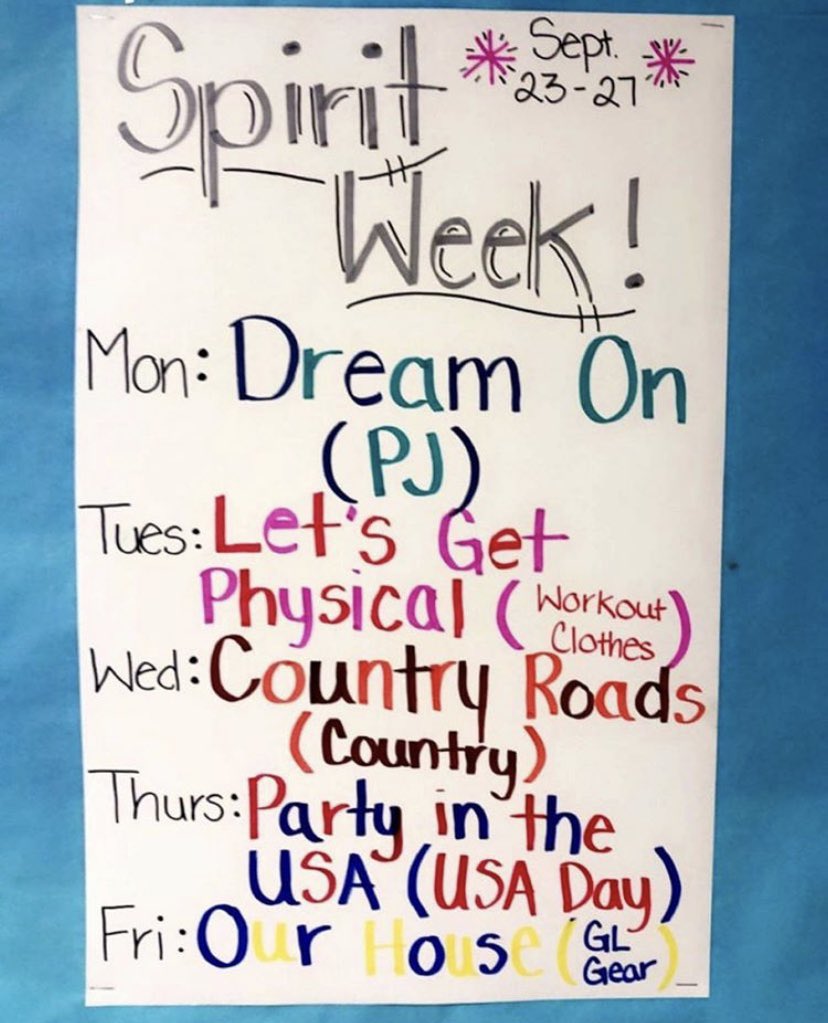 Spirit
Sept.
23-27
Week!
Mon: Dream On
(PJ)
Tues: Let's Get
Physical (Workout
Clothes)
Wed: Country Roads
(Country)
Thurs: Party in the
USA (USA Day)
Fri: Our House (GL
Gear)